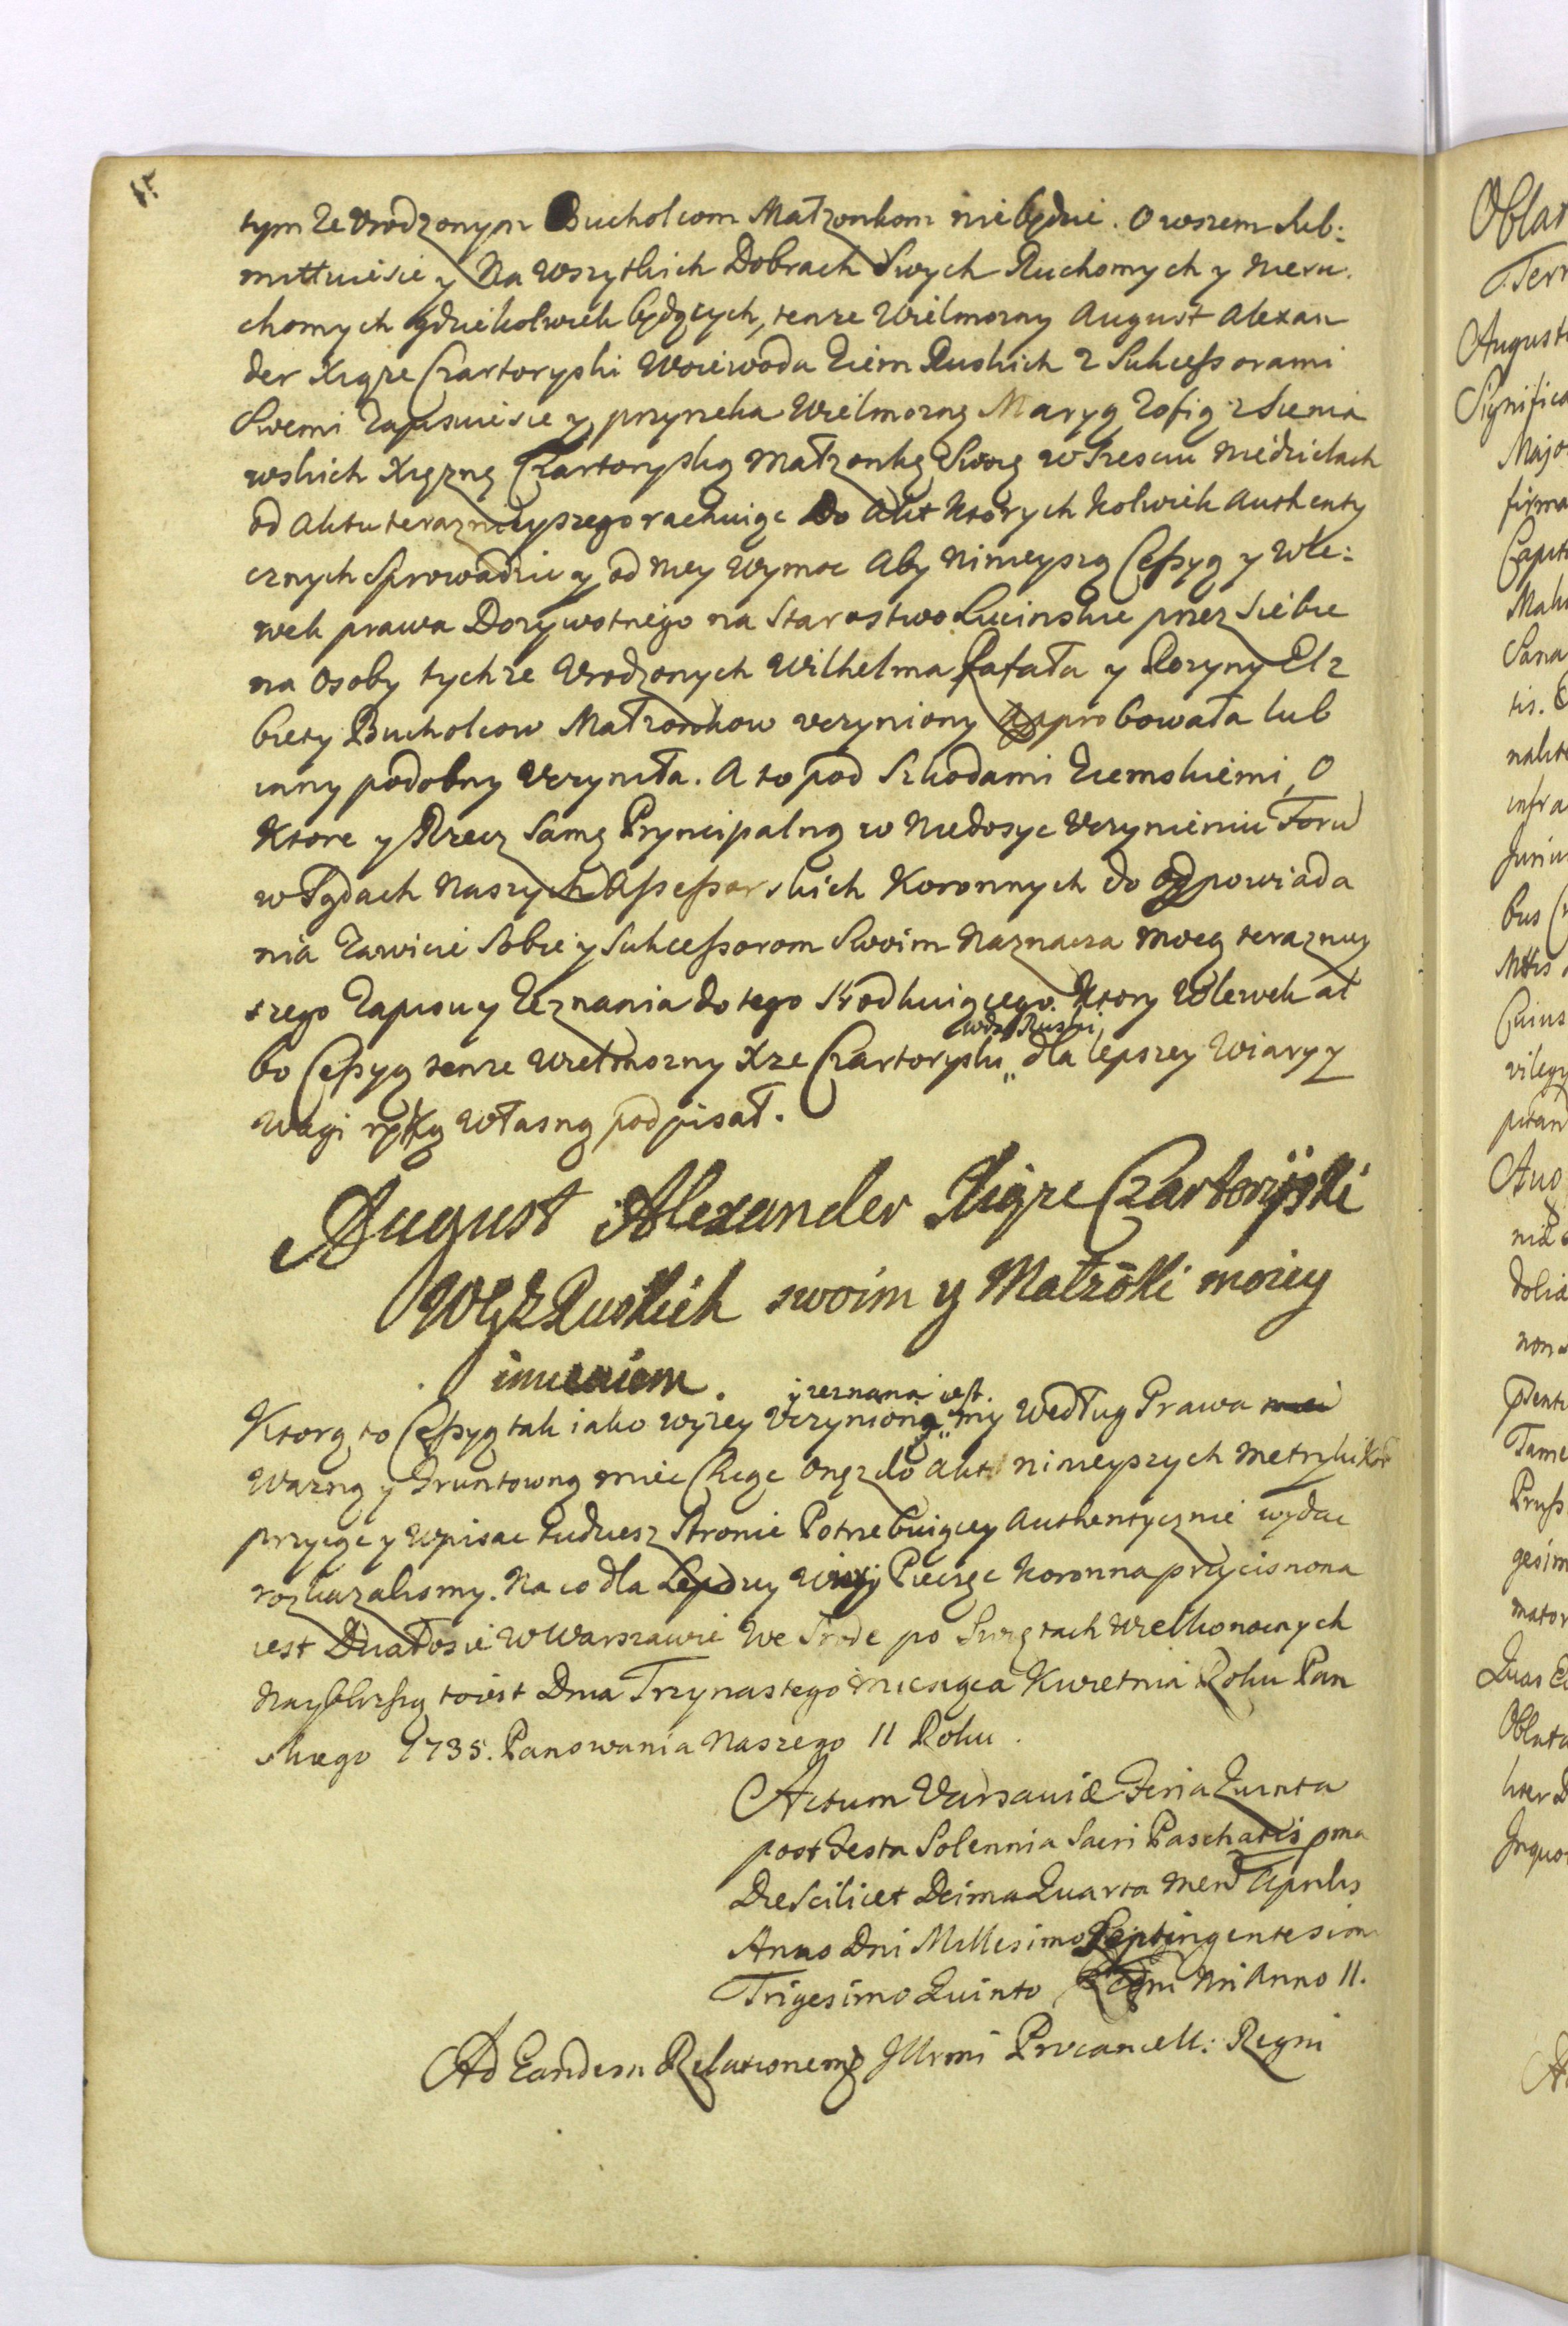 tym ze Urodzonym Bucholcom Małzonkom niebędzie. O wszem Sub:
mittuie sie y Na Wszytkich Dobrach Swych Ruchomych y Nieru.
chomych gdziekolwiek będących, tenze Wielmozny August Alexan
der Xiąze Czartoryski Woiewoda Ziem Ruskich z Sukcessorami
Swemi Zapisuie sie y przyrzeka Wielmozną Maryą Zofią z Sienia
wskich Xięznę Czartoryską Małzonkę Swoię w Szesciu Niedzielach
od Aktu teraznieyszego rachuiąc Do Akt Ktorych kolwiek Authenty
cznych Sprowadzic y od Niey Wymoc Aby Ninieyszą Cessyą y Wle:
wek prawa Dozywotnego na Starostwo Lucinskie przez Siebie
na Osoby tychze Urodzonych Wilhelma Rafała y Rozyny Elz
biety Bucholcow Małzonkow uczyniony approbowała lub
inny podobny Uczyniła. A to pod Szkodami Ziemskiemi, O
Ktore y Rzecz Samę Pryncipalną w Niedosyc Uczynieniu Foru
w Sądach Naszych Assessorskich Koronnych do odpowiada
nia Zawicie Sobie y Sukcessorom Swoim Naznacza mocą terazniey
szego Zapisu y Zeznania do tego Srodkuiącego. Ktory Wlewek al
bo Cessyą tenze Wielmozny Xze Czartoryski „ wda Ruski, dla lepszey Wiary y
Wagi ręką Własną podpisał.
August Alexander Xiąze Czartoryski
WGZ Ruskich swoim y Małzõki moiey
imieniem.
Ktorą to Cessyą tak iako wyzey Uczynioną „ y zeznana iest. my Według Prawa
Wazną y Gruntowną miec Chcąc Onęz do Akt Ninieyszych Metryki Kor
przyiąc y wpisac tudziesz Stronie Potrzebuiącey Authentycznie wydac
rozkazalismy. Na co dla Lepszey Wiary Pieczęc Koronna przycisnona
iest Działo sie w Warszawie We Srode po Swiętach Wielkonocnych
Nayblizszą to iest Dnia Trzynastego miesiąca Kwietnia Roku Pan
skiego 1735. Panowania Naszego II Roku.
Actum Varsaviæ Feria Quinta
post Festa Solennia Sacri Paschatis pma
Die Scilicet Decima Quarta Mens Aprilis
Anno Dni Millesimo Septingentesimo
Trigesimo Quinto Regni Nri Anno II.
Ad Eandem Relationem Illrmi Procancell: Regni
Oblat
Terr
August
Significa
Majo
firma
Capit
Sana
tis.
infra
bus
Cuius
vileg
pitan
Aug
nia
dolia
non
Tame
Pruss
gesim
mator
Oblata